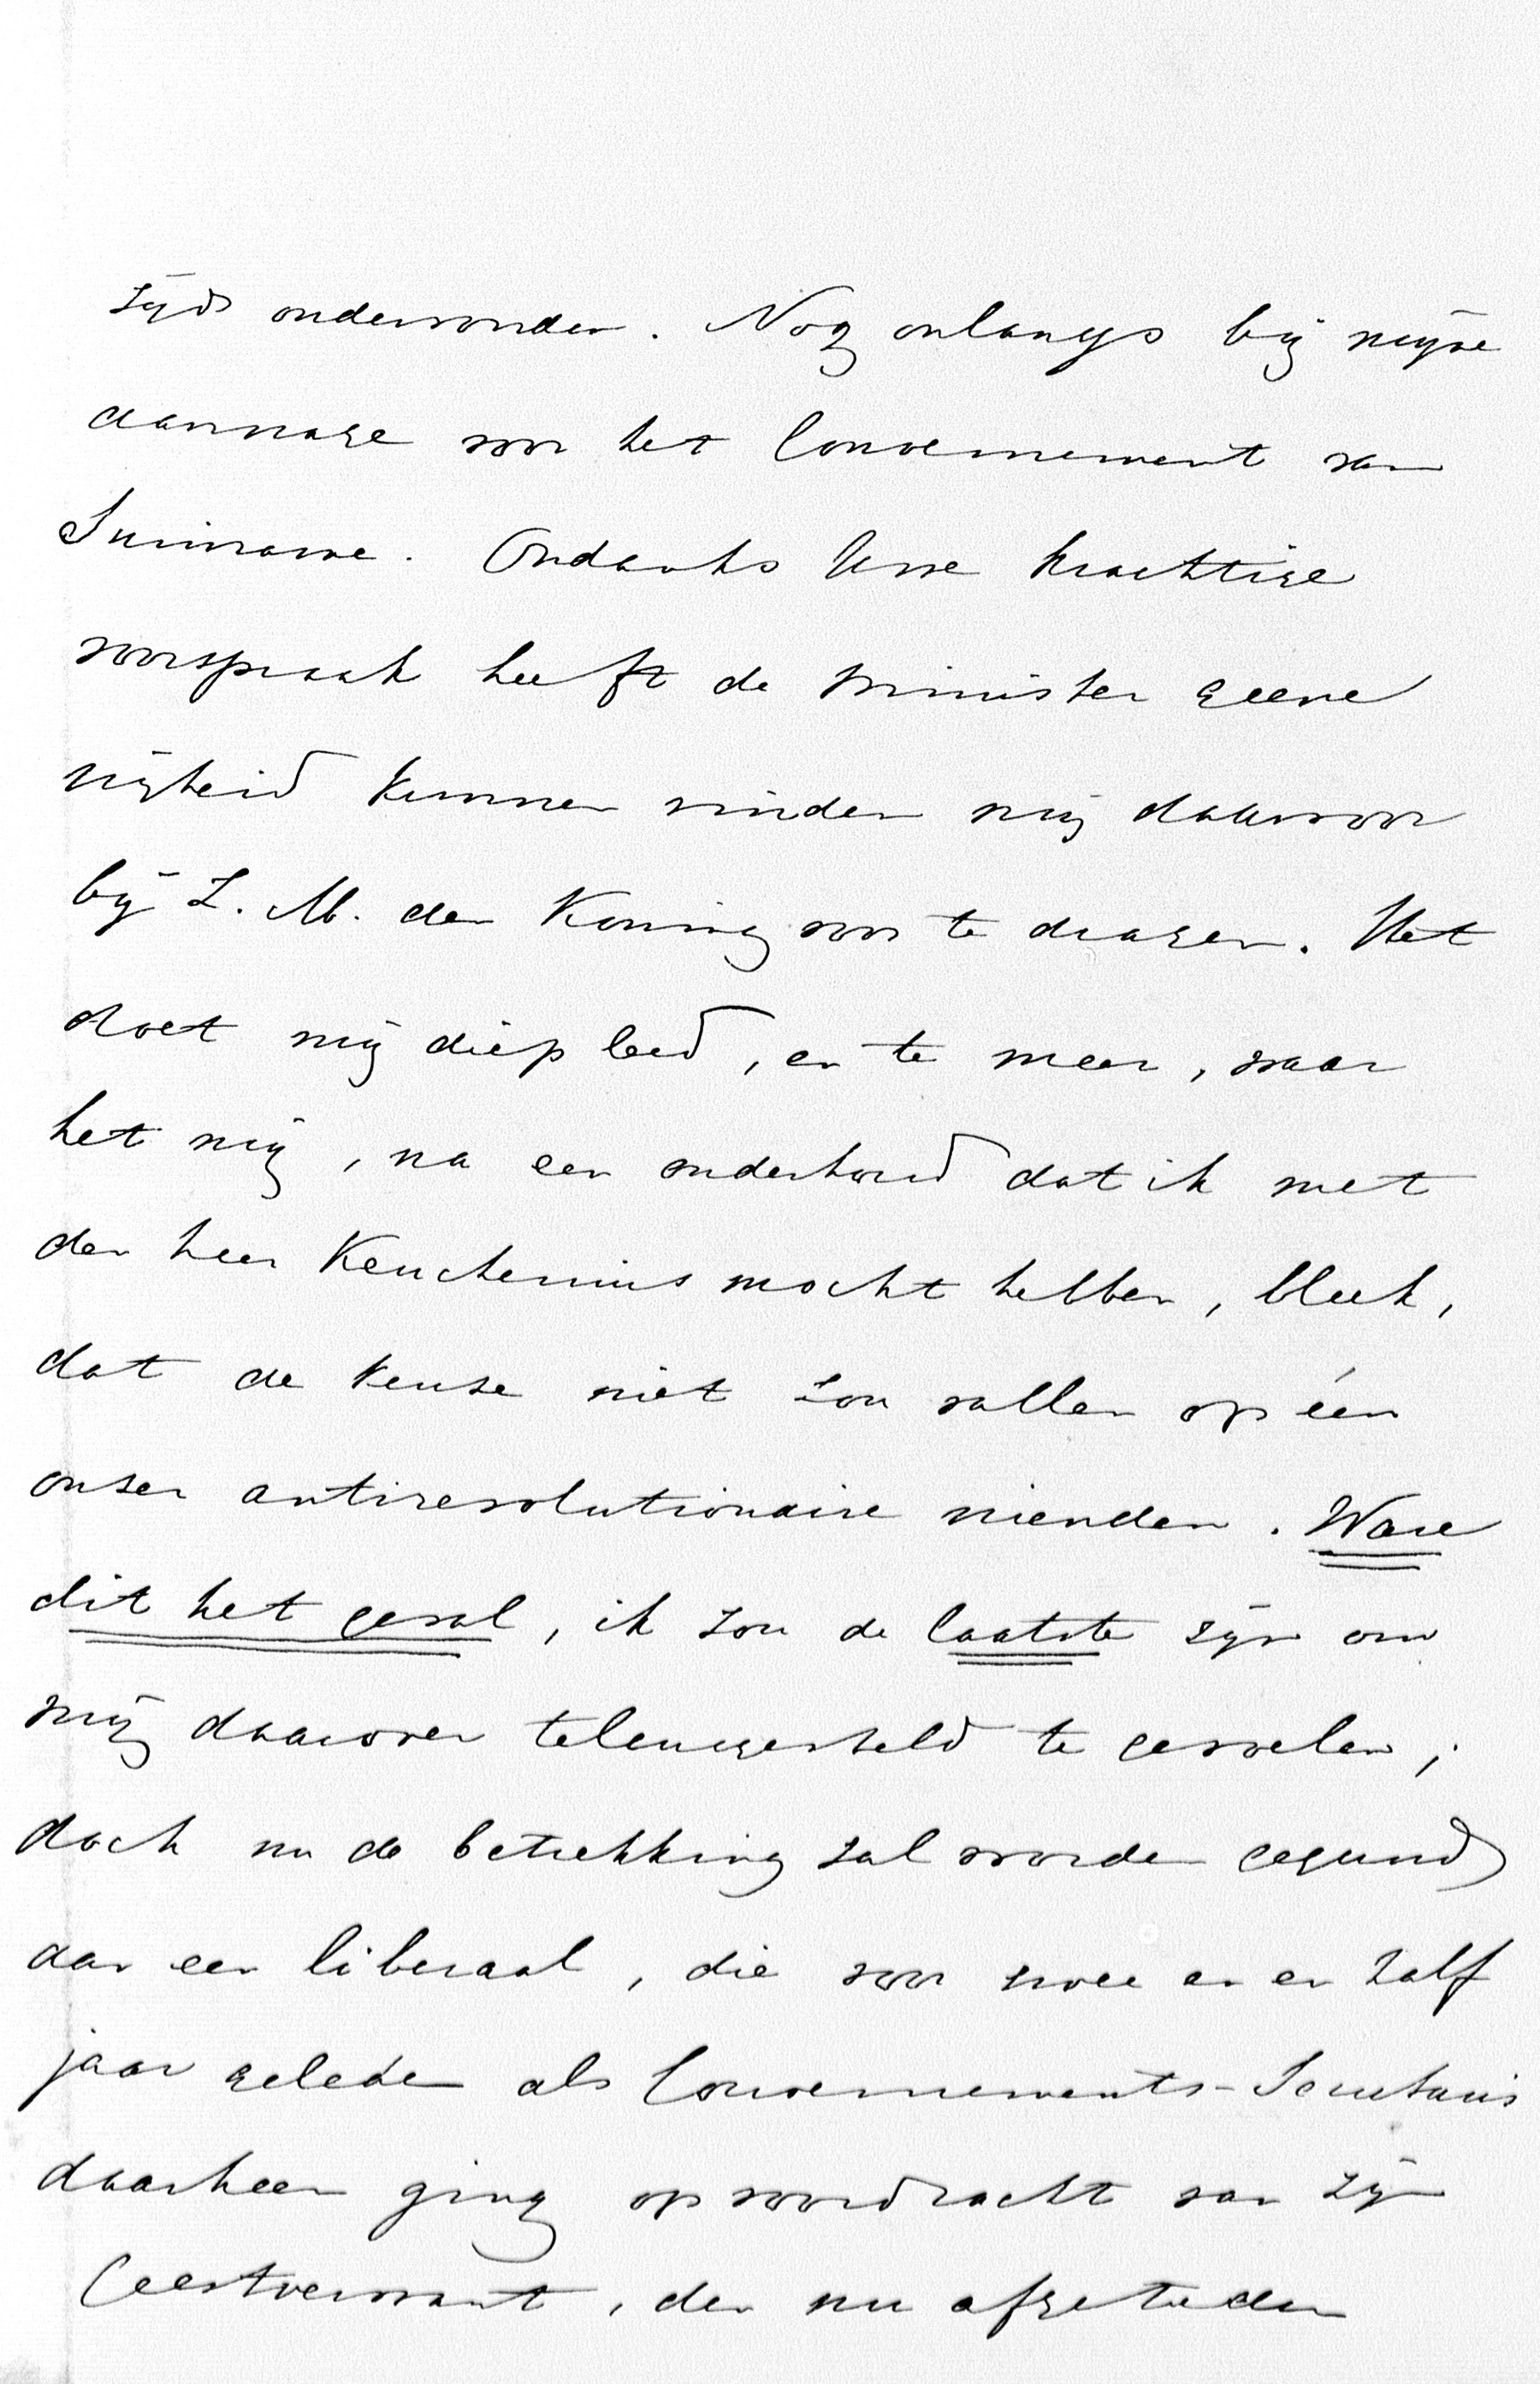 zijds ondervonden. Nog onlangs bij mijne
aanvrage voor het Gouvernement van
Suriname. Ondanks Uwe krachtige
voorspraak heeft de Minister geene
vrijheid kunnen vinden mij daarvoor
bij Z. M. den Koning voor te dragen. Het
doet mij diep leed, en te meer, waar
het mij, na een onderhoud dat ik met
den heer Keuchenius mocht hebben, bleek,
dat de keuze niet zou vallen op één
onzer antirevolutionaire vrienden. Ware
dit het geval, ik zou de laatste zijn om
mij daarover teleurgesteld te gevoelen;
doch nu de betrekking zal worden gegund
aan een liberaal, die voor twee en een half
jaar geleden als Gouvernements-Secretaris
daarheen ging op voordracht van zijn
Geestverwant, den nu afgetreden